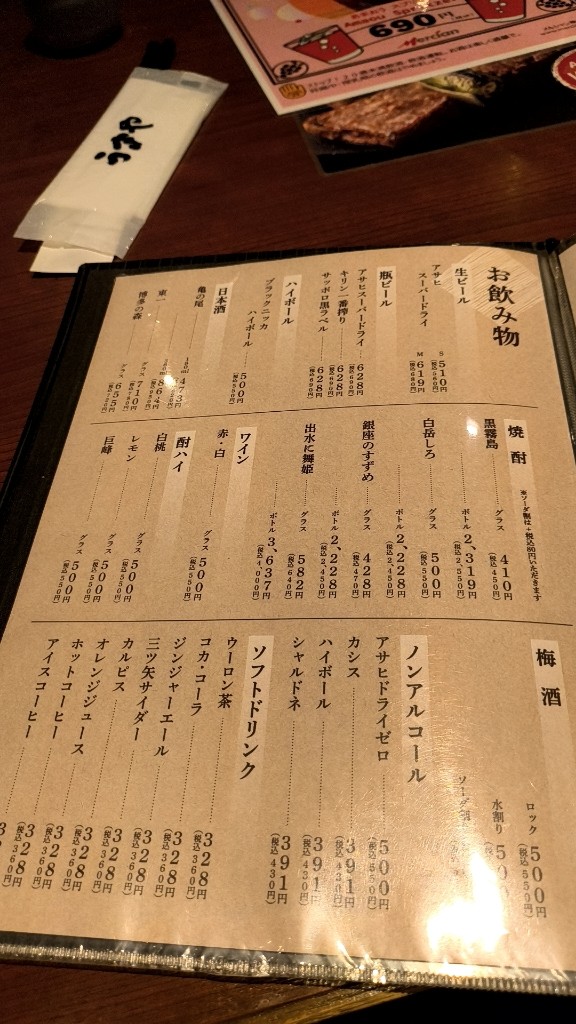 690円
Mercian
うまや
お飲み物
生ビール
アサヒ
スーパードライ
S 510円
(税込560円)
M 619円
(税込680円)
瓶ビール
アサヒスーパードライ 628円
(税込690円)
キリン一番搾り 628円
(税込690円)
サッポロ黒ラベル 628円
(税込690円)
ハイボール
ブラックニッカ
ハイボール 500円
(税込550円)
日本酒
亀の尾 180ml
東一 864円
グラス 710円
博多の森 グラス 655円
(税込720円)
焼酎
※ソーダ割は+税込80円いただきます
黒霧島 グラス 410円
(税込450円)
ボトル 2,319円
(税込2,550円)
白岳しろ グラス 500円
(税込550円)
ボトル 2,228円
(税込2,450円)
銀座のすずめ グラス 428円
(税込470円)
ボトル 2,228円
(税込2,450円)
出水に舞姫 グラス 582円
(税込640円)
ボトル 3,637円
(税込4,000円)
ワイン
赤・白 グラス 500円
(税込550円)
酎ハイ
白桃 グラス 500円
(税込550円)
レモン グラス 500円
(税込550円)
巨峰 グラス 500円
(税込550円)
梅酒
ロック 500円
(税込550円)
水割り
ソーダ割
ノンアルコール
アサヒドライゼロ 500円
(税込550円)
カシス 391円
(税込430円)
ハイボール 391円
(税込430円)
シャルドネ 391円
(税込430円)
ソフトドリンク
ウーロン茶 328円
(税込360円)
コカ・コーラ 328円
(税込360円)
ジンジャーエール 328円
(税込360円)
三ツ矢サイダー 328円
(税込360円)
カルピス 328円
(税込360円)
オレンジジュース 328円
(税込360円)
ホットコーヒー 328円
(税込360円)
アイスコーヒー